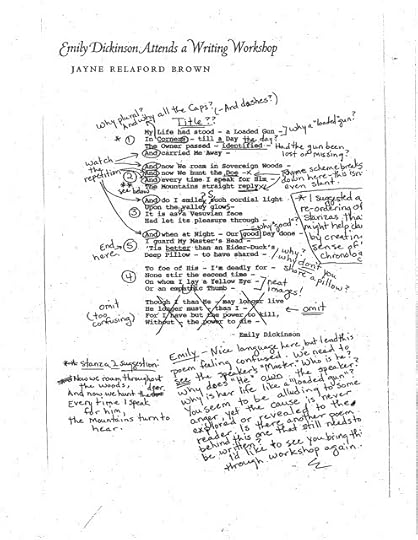 Emily Dickinson Attends a Writing Workshop
JAYNE RELAFORD BROWN
why plural?
And why all the Caps? (-And dashes?)
Title??
My Life had stood - a Loaded Gun -
why a "loaded gun?"
① In Corners - till a Day the day?
The Owner passed - identified -
Had the gun been lost or missing?
And carried Me Away -
watch the repetition
And now We roam in Sovereign Woods -
② And now We hunt the Doe - x
Rhyme scheme breaks down here - this isn't even slant.
And every time I speak for Him -
** see below
The Mountains straight reply x
And do I smile, such cordial light
* I suggested a re-ordering of stanzas that might help by creating sense of chronology
Upon the valley glows -
③ It is as a Vesuvian face
Had let its pleasure through -
why "good"?
And when at Night - Our good Day done -
End here.
⑤ I guard My Master's Head -
'Tis better than an Eider-Duck's
why?
Deep Pillow - to have shared -
why don't you share a pillow?
To foe of His - I'm deadly for -
④ None stir the second time -
On whom I lay a Yellow Eye -
neat images!
Or an emphatic Thumb -
omit (too confusing)
Though I than He may longer live
He longer must than I -
omit
For I have but the power to kill,
Without - the power to die -
Emily Dickinson
** stanza 2 suggestion
Now we roam throughout
the woods,
And now we hunt the deer.
Every time I speak
for him,
the Mountains turn to
hear.
Emily - Nice language here but I end this
poem feeling confused. We need to
see the speaker's "Master." Who is he?
Why does "He" own the speaker?
Why is her life like a "loaded gun"?
You seem to be alluding to some
anger, yet the cause is never
explored or revealed to the
reader. Is there another poem
behind this one that still needs to
be written? I'd like to see you bring this
through workshop again.